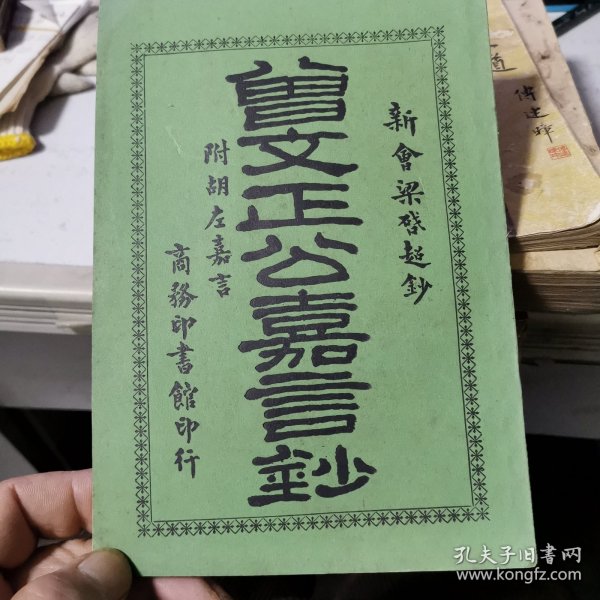 新會梁啓超鈔
曾文正公嘉言鈔
附胡左嘉言
商務印書館印行
孔夫子旧書网
www.kongfz.com